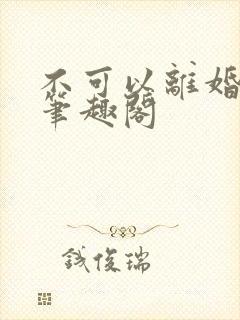 不可以離婚
筆趣閣
錢俊瑞